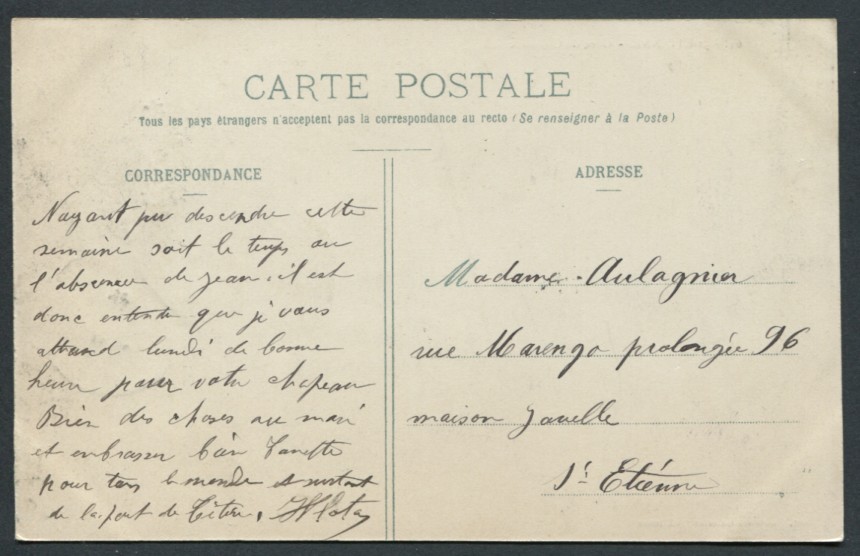 CARTE POSTALE
Tous les pays étrangers n'acceptent pas la correspondance au recto (Se renseigner à la Poste)
CORRESPONDANCE
Nayant pu descendre cette
semaine soit le temps ou
l'absence de jean. il est
donc entendu que je vous
attend lundi de bonne
heure pour votre chapeau
Bien des choses au mari
et embrasser bien
pour tous le monde et surtout
de la part de
ADRESSE
Madame Aulagnier
rue Marengo prolongée 96
maison
St Etienne